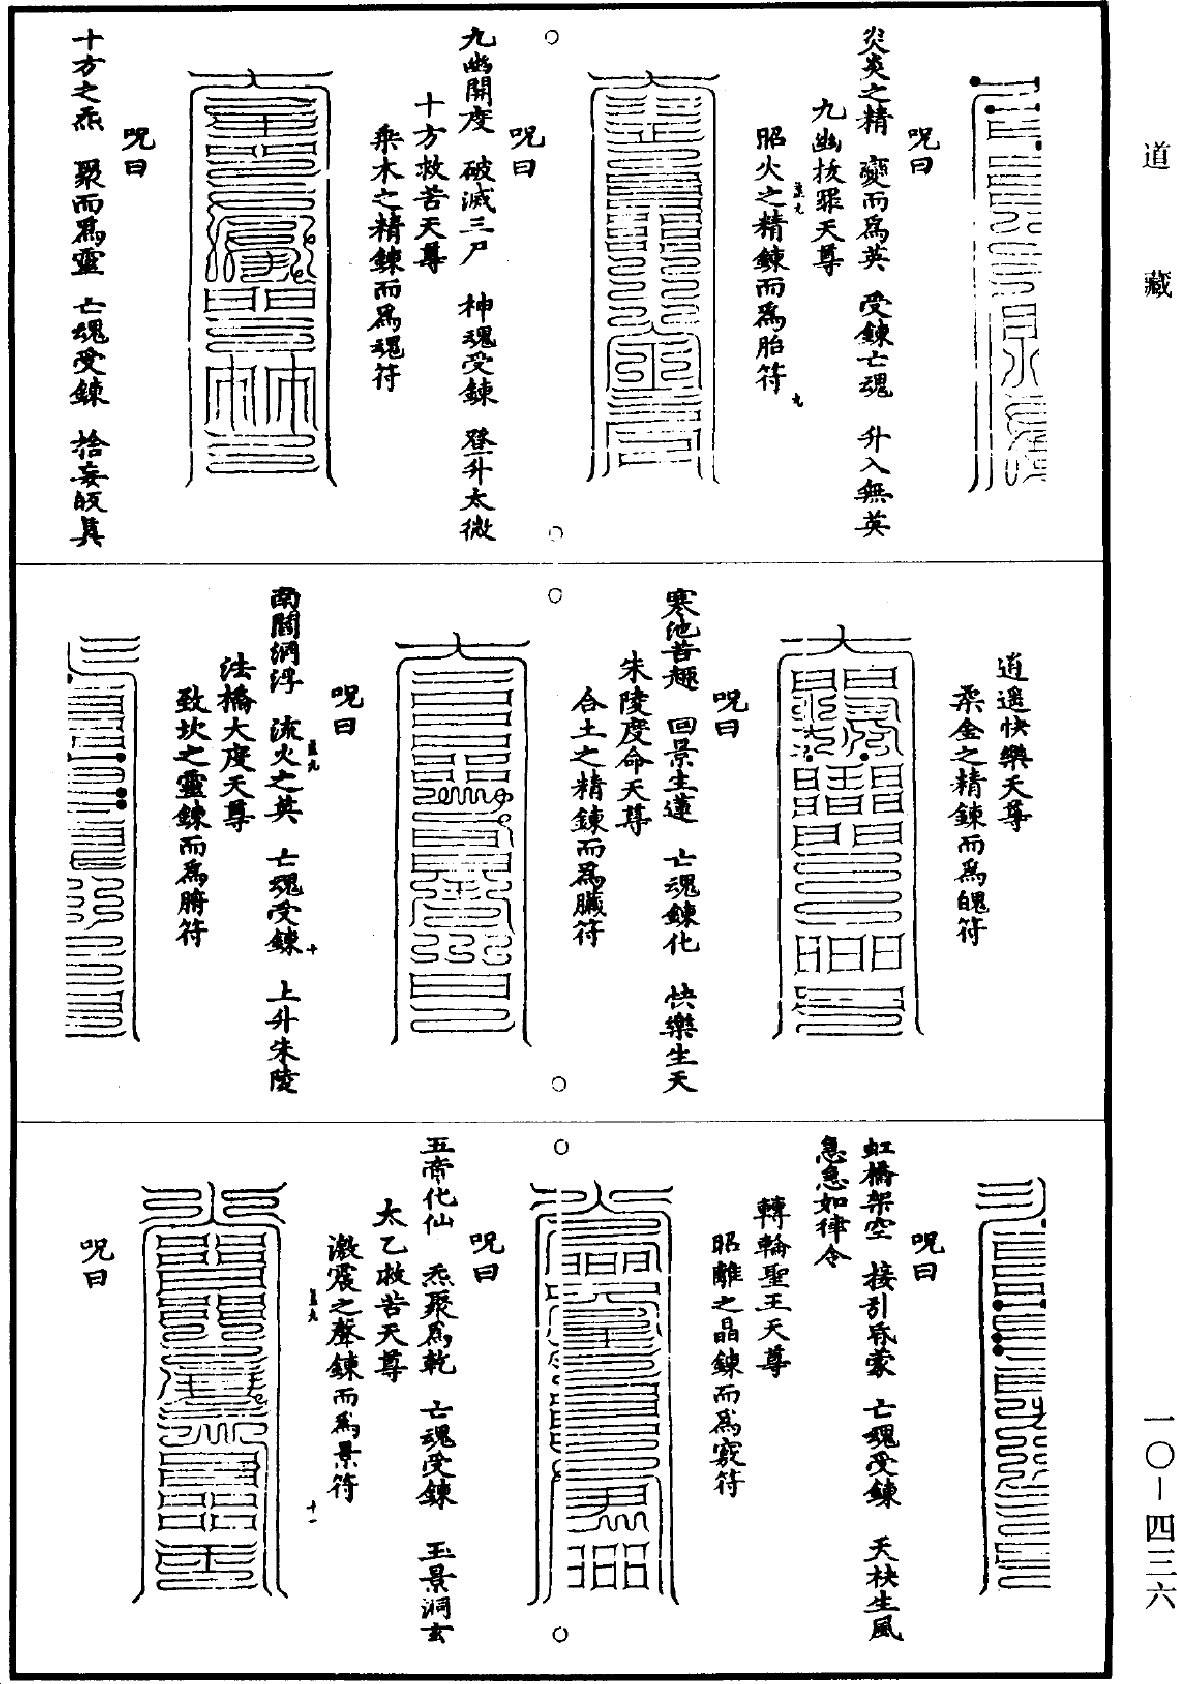 道藏
呪曰
炎炎之精　變而爲英　受鍊亡魂　升入無英
九幽拔罪天尊
昭火之精鍊而爲胎符
呪曰
九幽開度　破滅三尸　神魂受鍊　登升太微
十方救苦天尊
乘木之精鍊而爲魂符
呪曰
十方之炁　聚而爲靈　亡魂受鍊　捨妄皈真
逍遥快樂天尊
柔金之精鍊而爲魄符
呪曰
寒池苦趣　回景生蓮　亡魂鍊化　快樂生天
朱陵度命天尊
合土之精鍊而爲臟符
呪曰
南閻洞浮　流火之英　亡魂受鍊　上升朱陵
法橋大度天尊
致坎之靈鍊而爲腑符
呪曰
虹橋架空　接引昏蒙　亡魂受鍊　天枎生風
急急如律令
轉輪聖王天尊
昭離之晶鍊而爲竅符
呪曰
五帝化仙　炁聚爲乾　亡魂受鍊　玉景洞玄
太乙救苦天尊
激震之聲鍊而爲景符
呪曰
一〇－四三六